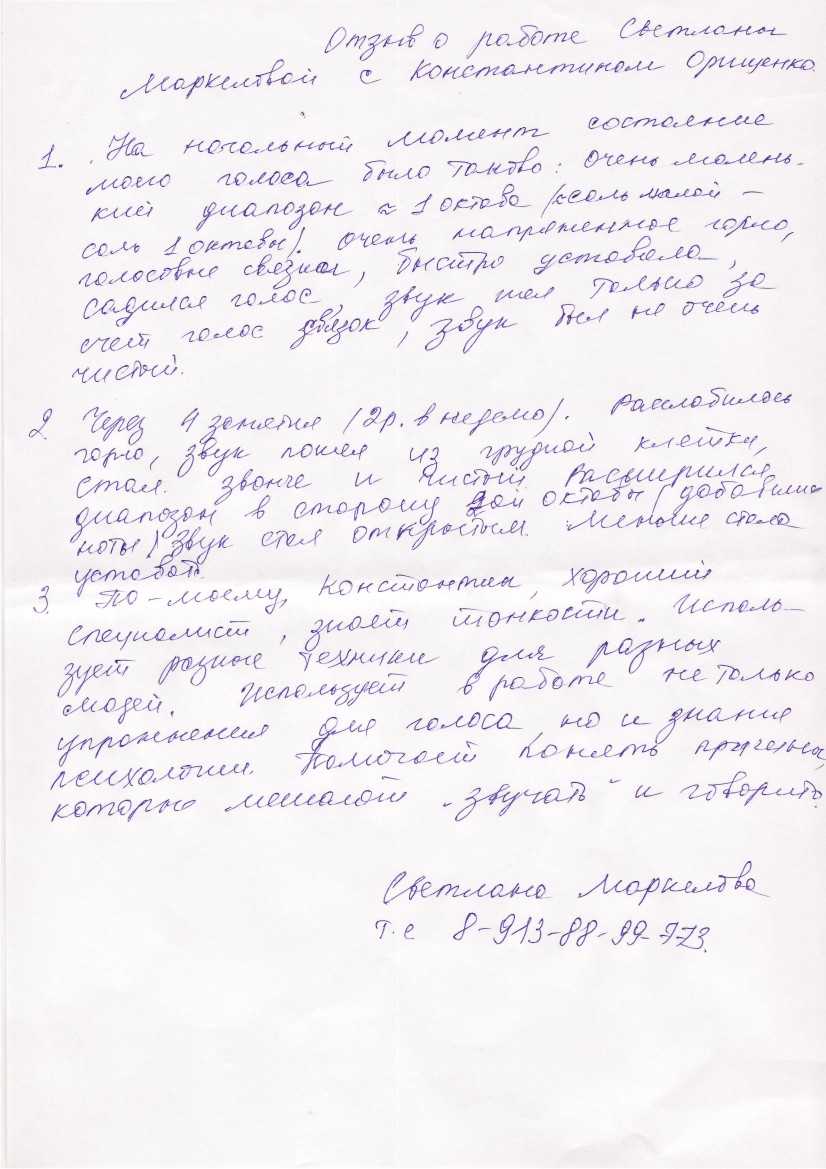 Отзыв о работе Светланы
Маркеловой с Константином Орищенко.
1. На начальный момент состояние
моего голоса было таково: очень малень-
кий диапозон ≈ 1 октава (≈соль малой –
соль 1 октавы). Очень напряженное горло,
голосовые связки, быстро уставала,
садился голос, звук шел только за
счет голос связок, звук был не очень
чистый.
2 Через 4 занятия (2р. в неделю). Расслабилось
горло, звук пошел из грудной клетки,
стал звонче и чистый. Расширился
диапозон в сторону 2ой октавы (добавились
ноты) звук стал открытым. Меньше стала
уставать.
3. По-моему, Константин, хороший
специалист, знает тонкости. Исполь-
зует разные техники для разных
людей. Использует в работе не только
упражнения для голоса, но и знания
психологии. Помогает понять причины,
которые мешают „звучать" и говорить.
Светлана Маркелова
т.с 8-913-88-99-773.